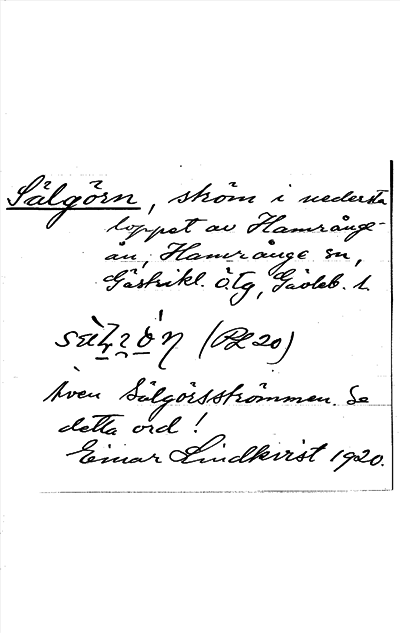 Sälgörn, ström i nedersta
loppet av Hamrånge-
ån, Hamrånge sn,
Gästrikl. Ö. Tg, Gävleb. l.
(Bl 20)
Även Sälgörsströmmen. Se
detta ord!
Einar Lindkvist 1920.